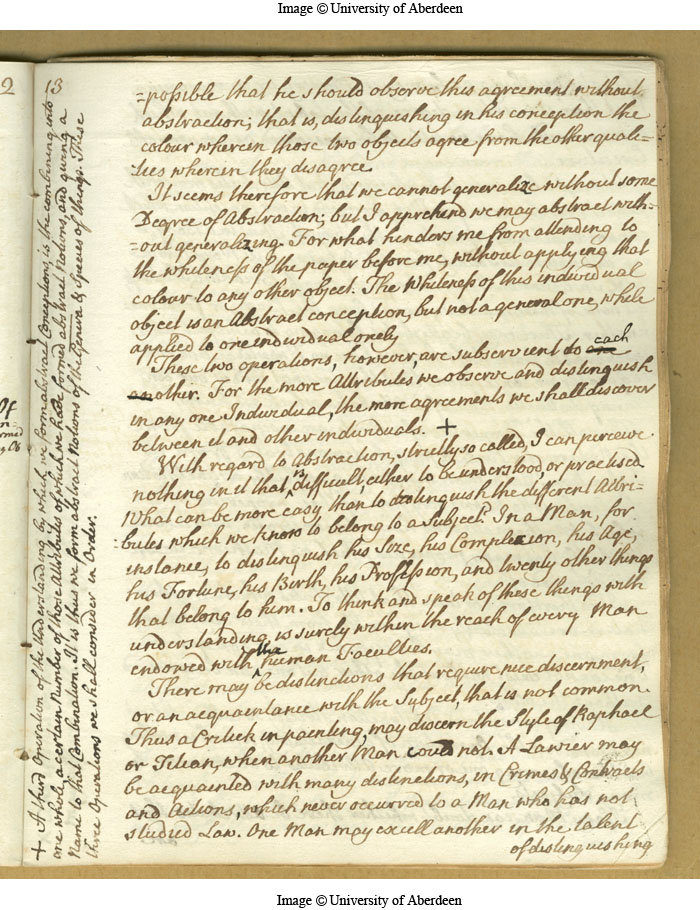 Image © University of Aberdeen
2
13
=possible that he should observe this agreement without
abstraction; that is, distinguishing in his conception the
colour wherein those two objects agree from the other quali=
ties wherein they disagree.
It seems therefore that we cannot generalize without some
Degree of Abstraction; but I apprehend we may abstract with=
=out generalizing. For what hinders me from attending to
the whiteness of the paper before me, without applying that
colour to any other object. The Whiteness of this individual
object is an Abstract conception, but not a general one, while
applied to one individual onely
These two operations, however, are subservient to each
another. For the more Attributes we observe and distinguish
in any one Individual, the more agreements we shall discover
between it and other individuals. +
With regard to Abstraction, strictly so called, I can perceive
nothing in it that is difficult, either to be understood, or practised.
What can be more easy than to distinguish the different Attri-
butes which we know to belong to a Subject. In a Man, for
instance, to distinguish his Size, his Complexion, his Age,
his Fortune, his Birth, his Profession, and twenty other things
that belong to him. To think and speak of these things with
understanding, is surely within the reach of every Man
endowed with the human Faculties.
There may be distinctions that require nice discernment,
or an acquaintance with the Subject, that is not common.
Thus a Critick in painting, may discern the Style of Raphael
or Titian, when another Man could not. A Lawier may
be acquainted with many distinctions, in Crimes & Contracts
and Actions, which never occurred to a Man who has not
studied Law. One Man may excell another in the talent
of distinguishing
+ A third Operation of the Understanding by which we form abstract Conceptions, is the combining into
one whole a certain number of those Attributes of which we have formed abstract Notions, and giving a
Name to that Combination. It is thus we form abstract Notions of the Genera & Species of things. These
three Operations we shall consider in Order.
Image © University of Aberdeen